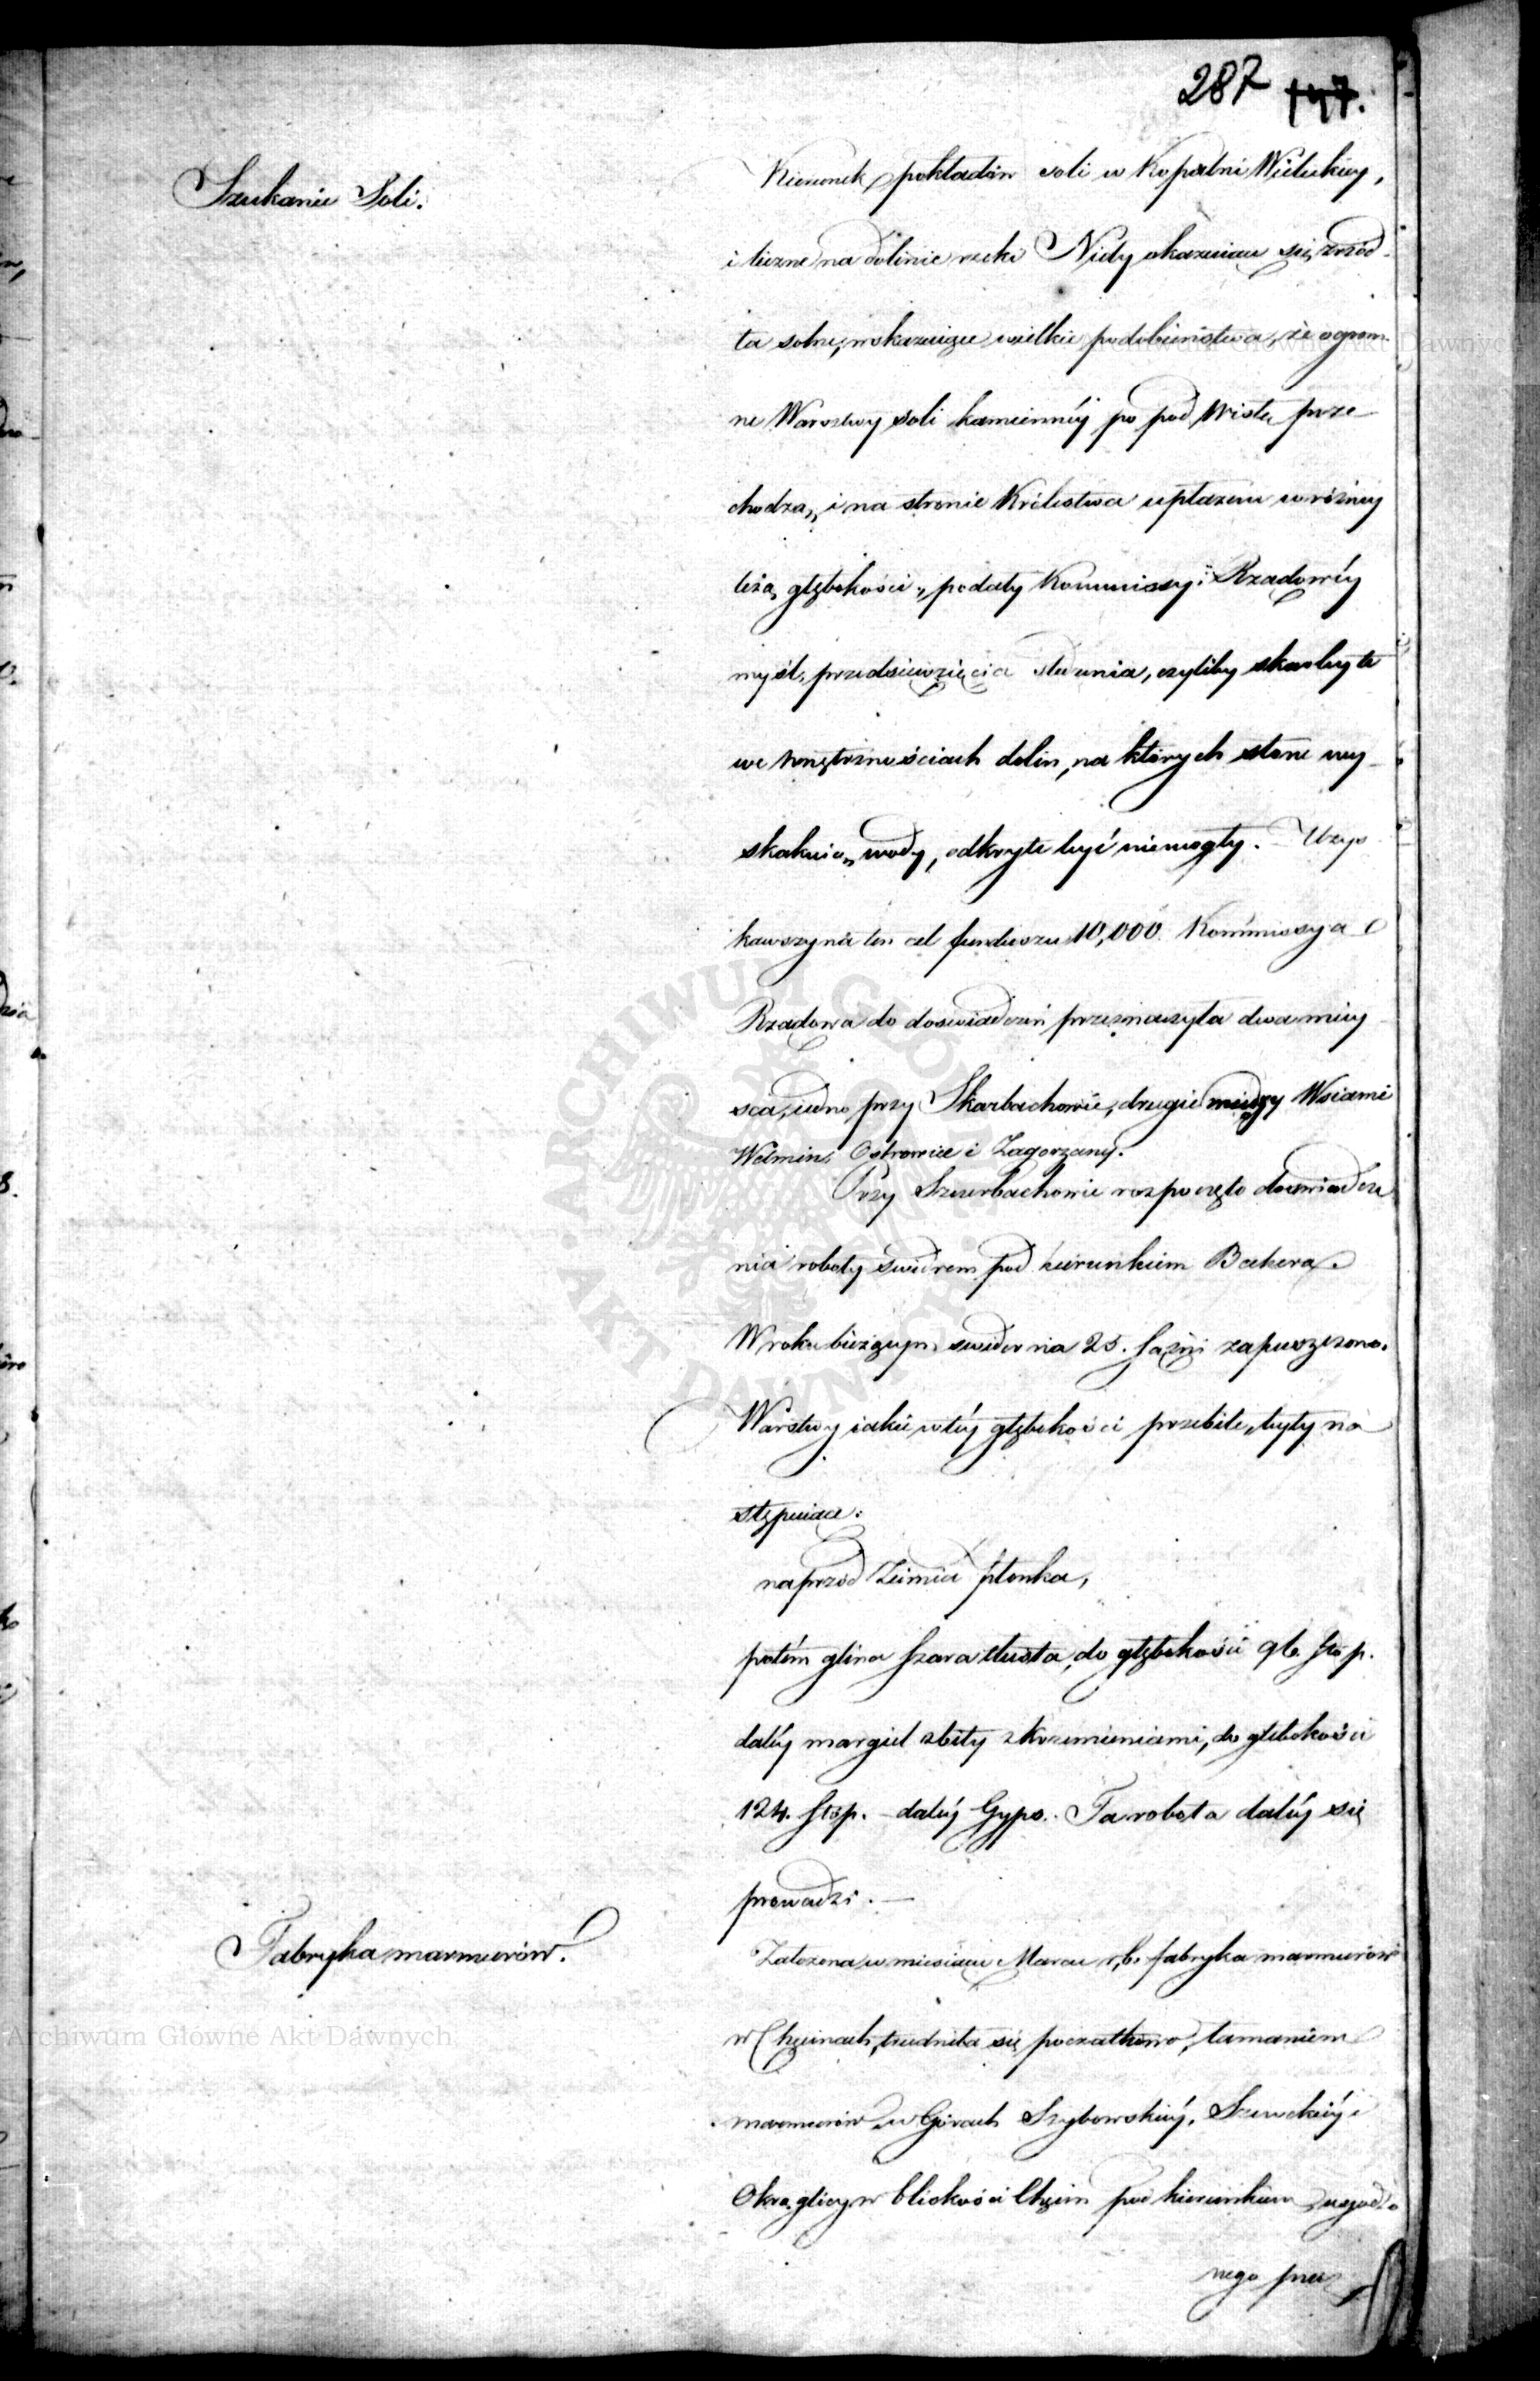 287 147.
Szukanie Soli.
Kierunek pokładów soli w Kopalni Wielickiey,
i liczne na dolinie rzeki Nidy okazuiące się źród-
ła solne, wskazuiące wielkie podobieństwa, że ogrom-
ne Warsztwy soli kamiennéy po pod Wisłą prze-
chodzą, i na stronie Królestwa upłazem w różney
leżą głębokości, podały Kommissyi Rządowéy
myśl, przedsięwzięcia śledzenia, czyliby skarby te
we wnętrznościach dolin, na których słone wy-
skakuią wody, odkryte być niemogły. Uzys-
kawszy na ten cel funduszu 10,000. Kommissya
Rządowa do doświadczeń przeznaczyła dwa miey-
sca, iedno przy Skarbachowie, drugie między Wsiami
Wełnin, Ostrowice i Zagorzany.
Przy Szczerbachowie rozpoczęto doświadcze-
nia roboty świdrem pod kierunkiem Bekera
W roku bieżącym świder na 25. sążni zapuszczono.
Warstwy iakie w téy głębokości przebite, były na-
stępuiące:
naprzód Ziemia płonka,
potém glina szara tłusta, do głębokości 96. stóp.
daléy margiel zbity z krzemieniami, do głębokości
124. stóp. - daléy Gyps. Ta robota daléy się
prowadzi. —
Fabryka marmurów.
Założona w miesiącu Marcu r. b. fabryka marmurów
w Chęcinach, trudniła się początkowo, łamaniem
marmurów w Górach Zygbowskiéy, Szewckiéy i
Okrąglicy w bliskości Chęcin pod kierunkiem zugodzo-
nego przez
Archiwum Główne Akt Dawnych
Archiwum Główne Akt Dawnych
ARCHIWUM GŁÓWNE AKT DAWNYCH